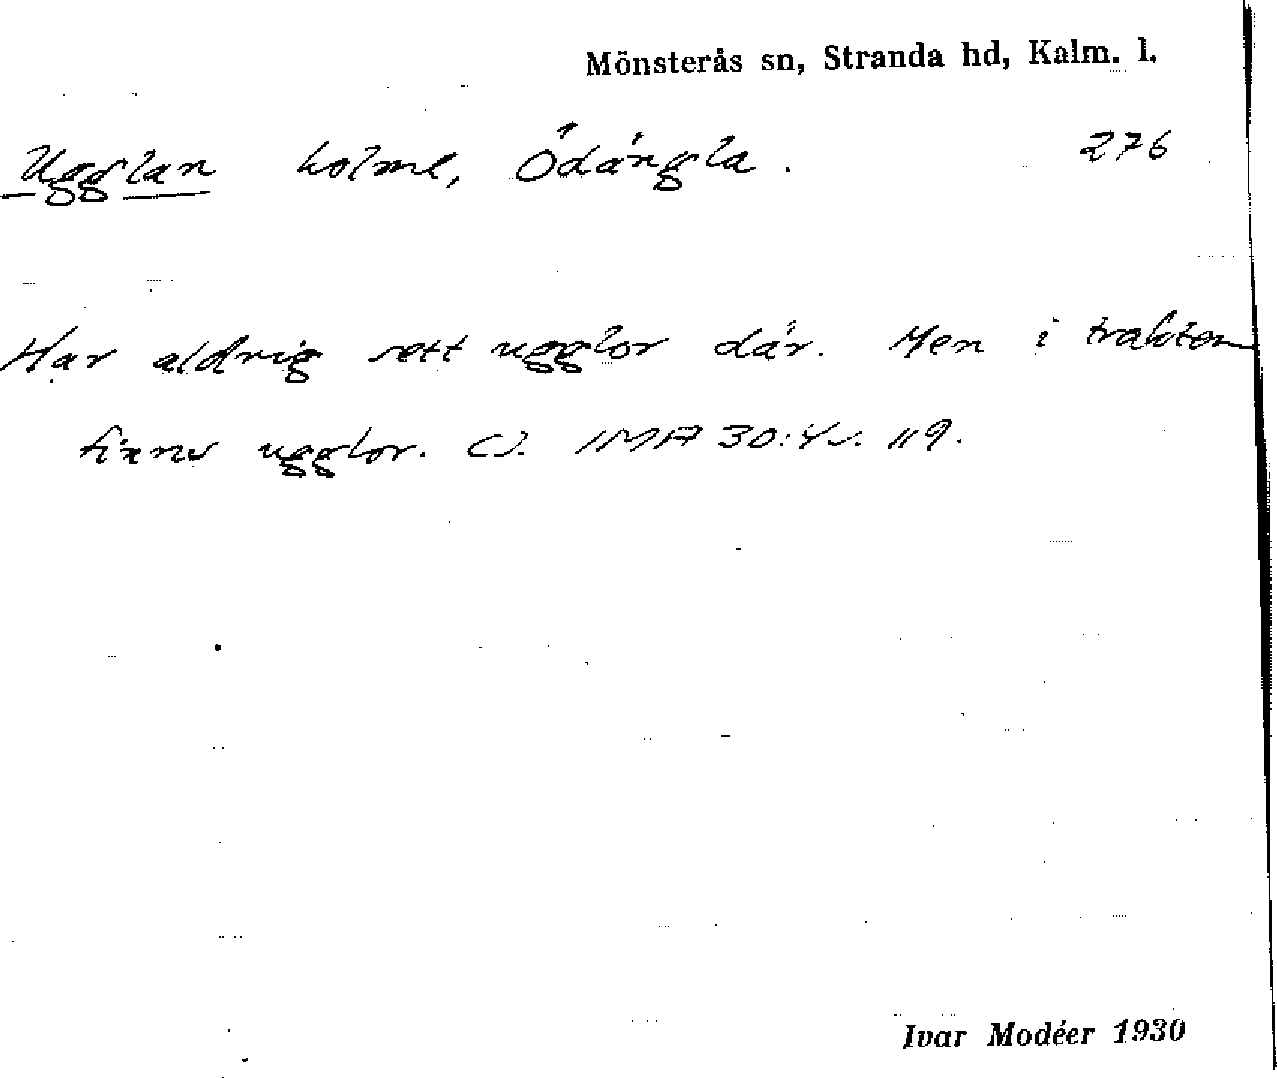 Mönsterås sn, Stranda hd, Kalm. l.
Ugglan holme, Ödängla. 276
Har aldrig sett ugglor där. Men i trakten
finns ugglor. CJ. IMA 30:4 s. 119.
Ivar Modéer 1930